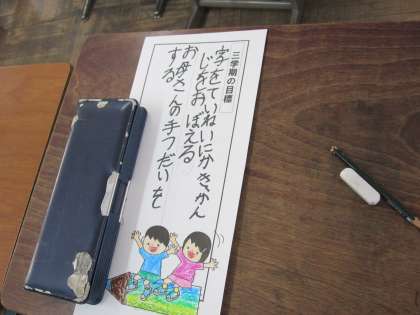 三学期の目標
字をていねいにかき、かん
じをおぼえる
お母さんの手つだいを
する